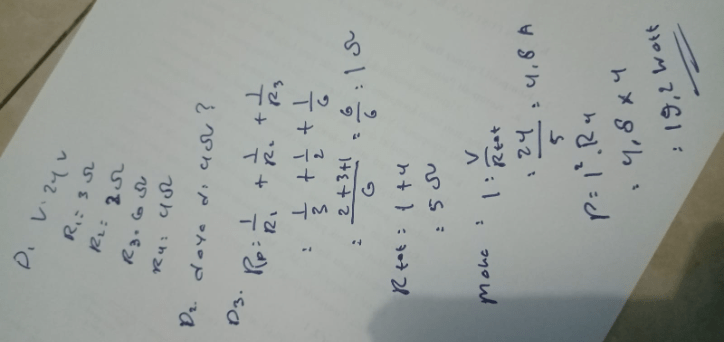 D1 V = 24 V
R1 = 3 Ω
R2 = 2 Ω
R3 = 6 Ω
R4 = 4 Ω
D2. daya di 4 Ω ?
D3. Rp = 1/R1 + 1/R2 + 1/R3
= 1/3 + 1/2 + 1/6
= 2+3+1/6 = 6/6 = 1 Ω
R tot = 1 + 4
= 5 Ω
maka : I = V/R tot
= 24/5 = 4,8 A
P = I². R4
= 4,8 x 4
= 19,2 watt